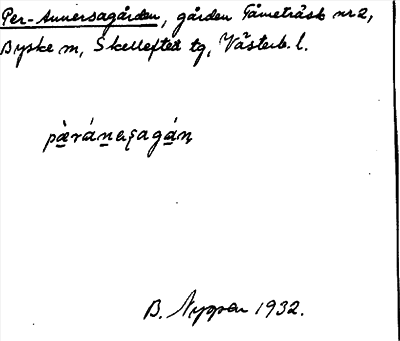 Per-Annersagården, gården Tåmeträsk nr 2,
Byske sn, Skellefteå tg, Västerb. l.
pæ̀ránaʂagán̥
B. Nyman 1932.